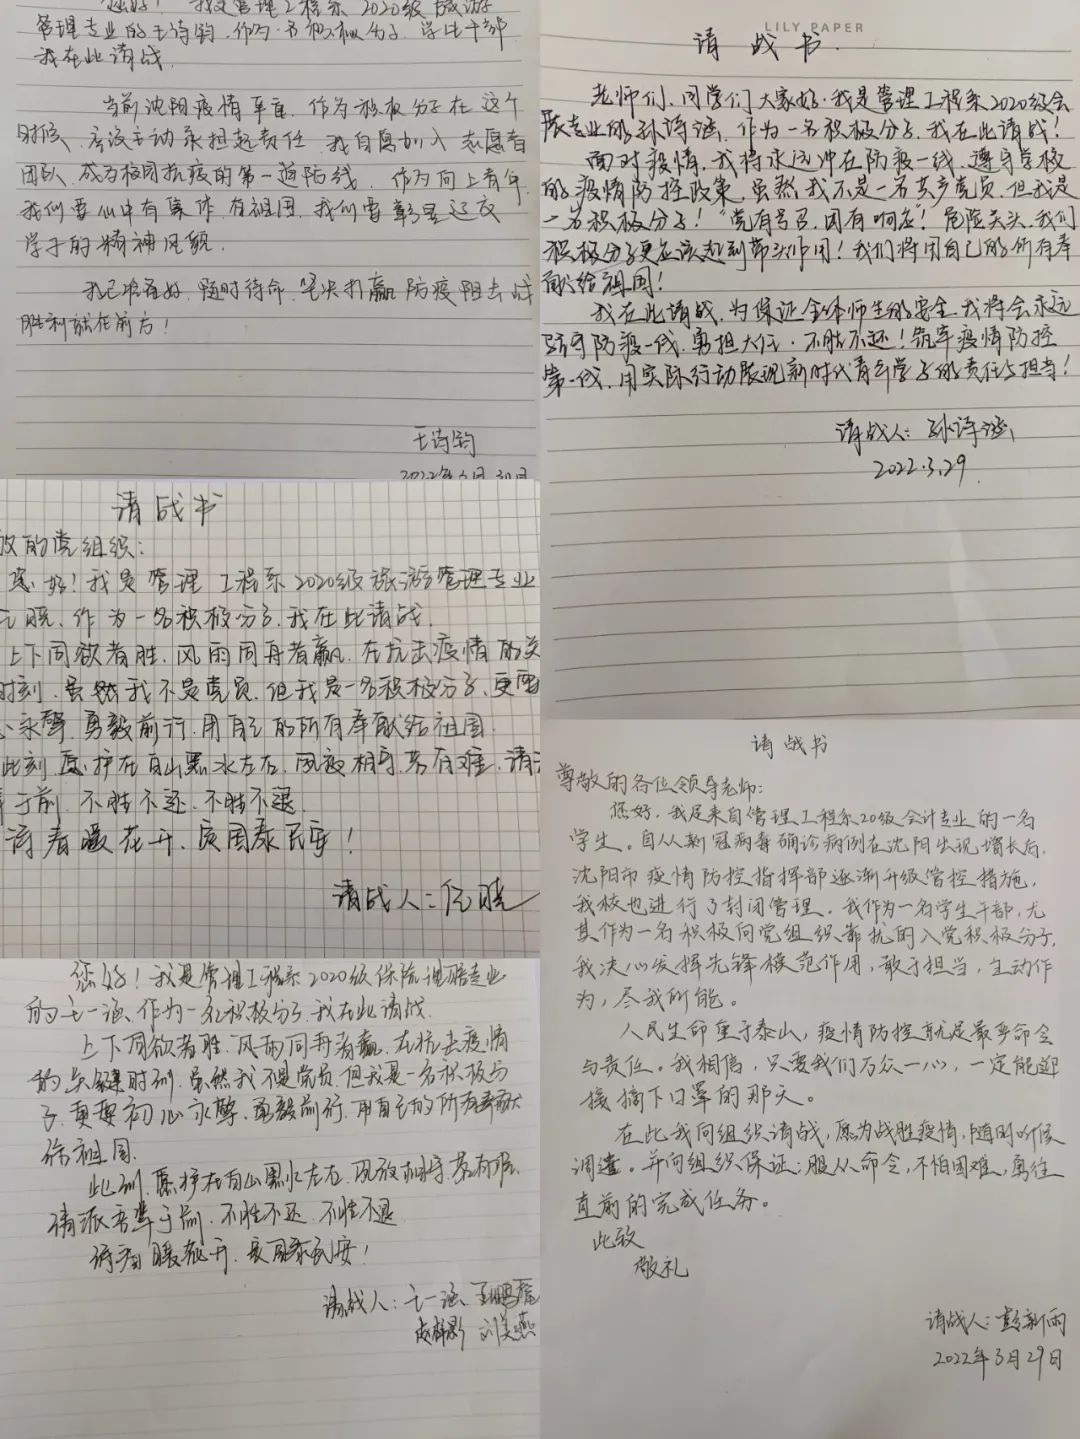 您好！我是管理工程系2020级旅游
管理专业的王诗钧，作为一名积极分子，学生干部
我在此请战。
当前沈阳疫情严重，作为积极分子在这个
时候，应该主动承担起责任，我自愿加入志愿者
团队，成为校园抗疫的第一道防线，作为向上青年，
我们要心中有集体，有祖国，我们要彰显辽交
学子的精神风貌。
我已准备好，随时待命，坚决打赢防疫阻击战
胜利就在前方！
王诗钧
2022年3月30日
LILY PAPER
请战书
老师们、同学们大家好，我是管理工程系2020级会
展专业的孙诗涵，作为一名积极分子，我在此请战！
面对疫情，我将永远冲在防疫一线，遵守学校
的疫情防控政策，虽然我不是一名共产党员，但我是
一名积极分子！“党有号召，团有响应”！危险关头，我们
积极分子更应该起到带头作用！我们将用自己的所有奉
献给祖国！
我在此请战，为保证全体师生的安全，我将会永远
坚守防疫一线，勇担大任，不胜不还！筑牢疫情防控
第一线，用实际行动展现新时代青年学子的责任与担当！
请战人：孙诗涵
2022.3.29
请战书
敬的党组织：
您好！我是管理工程系2020级旅游管理专业
晓，作为一名积极分子，我在此请战。
上下同欲者胜，风雨同舟者赢，在抗击疫情的关
时刻，虽然我不是党员，但我是一名积极分子，更要
心永馨，勇毅前行，用自己的所有奉献给祖国。
此刻，愿护在白山黑水左右，风疫相守，若有难，请
于前，不胜不还，不胜不退。
待春暖花开，庆国泰民安！
请战人：任晓
您好！我是管理工程系2020级保险理赔专业
的王一涵，作为一名积极分子，我在此请战。
上下同欲者胜，风雨同舟者赢，在抗击疫情
的关键时刻，虽然我不是党员，但我是一名积极分
子，更要初心永馨，勇毅前行，用自己的所有奉献
给祖国。
此刻，愿护在白山黑水左右，风疫相守，若有难，
请派吾辈于前，不胜不还，不胜不退。
待春暖花开，庆国泰民安！
请战人：王一涵
刘美燕
请战书
尊敬的各位领导老师：
您好，我是来自管理工程系20级会计专业的一名
学生。自从新冠病毒确诊病例在沈阳出现增长后，
沈阳市疫情防控指挥部逐渐升级管控措施，
我校也进行了封闭管理。我作为一名学生干部，尤
其作为一名积极向党组织靠拢的入党积极分子，
我决心发挥先锋模范作用，敢于担当，主动作
为，尽我所能。
人民生命重于泰山，疫情防控就是最严命令
与责任。我相信，只要我们万众一心，一定能迎
接摘下口罩的那天。
在此我向组织请战，愿为战胜疫情，随时听候
调遣。并向组织保证：服从命令，不怕困难，勇往
直前的完成任务。
此致
敬礼
请战人：彭新雨
2022年3月29日